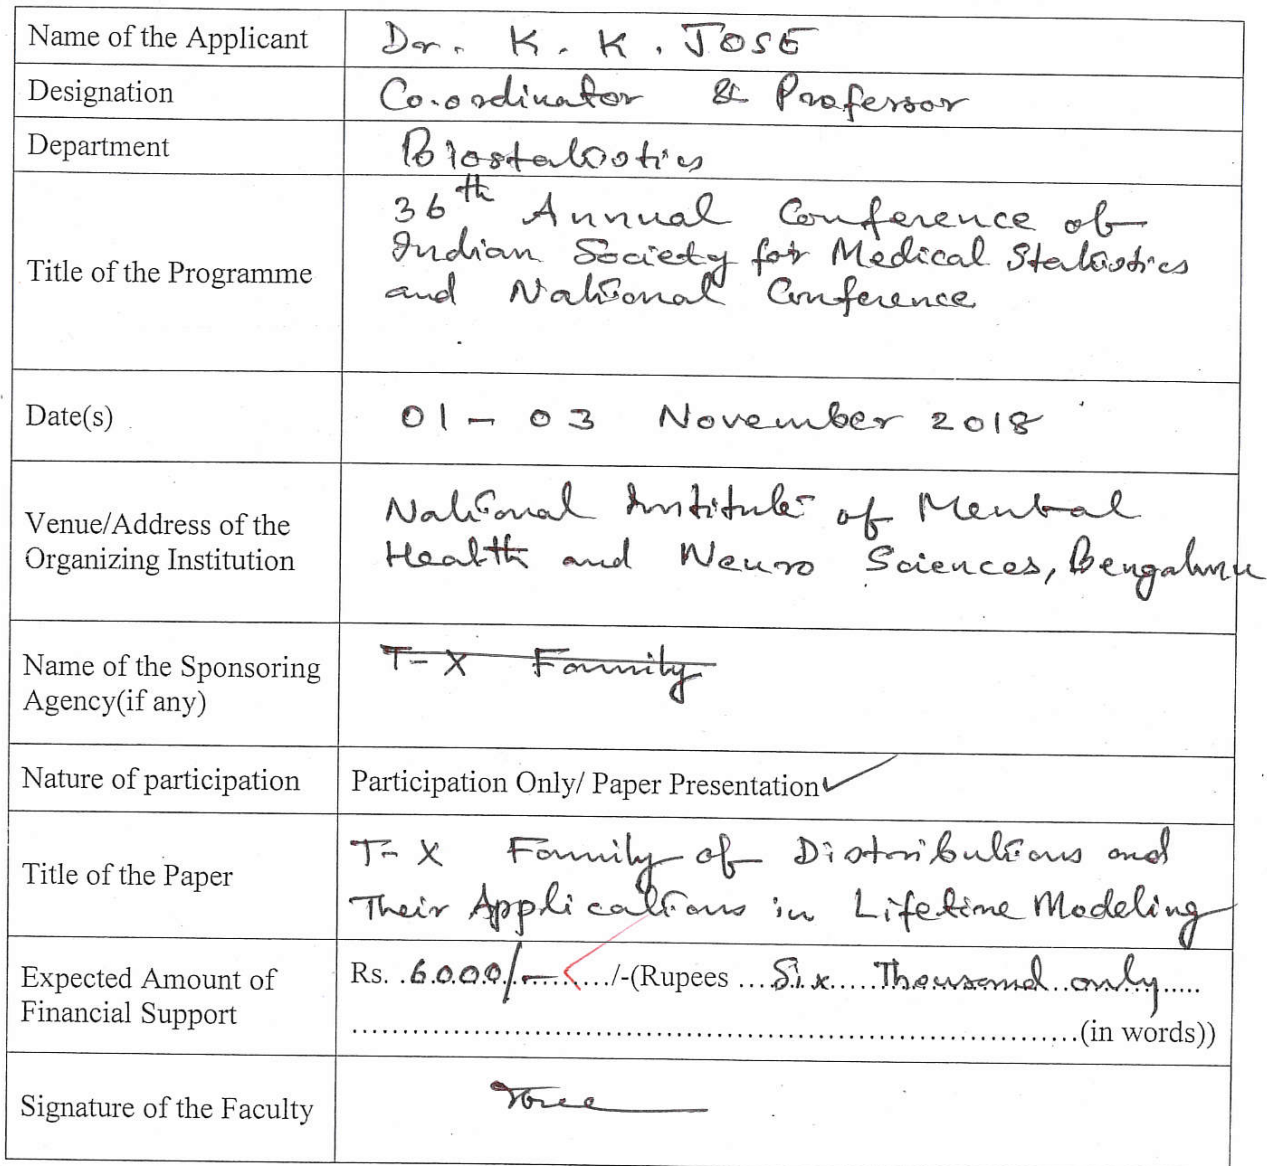 Name of the Applicant Dr. K. K. JOSE
Designation Co.ordinator & Professor
Department Biostatistics
Title of the Programme
36th Annual Conference of
Indian Society for Medical Statistics
and National Conference
Date(s) 01 - 03 November 2018
Venue/Address of the
Organizing Institution
National Institute of Mental
Health and Neuro Sciences, Bengaluru
Name of the Sponsoring
Agency(if any)
T-X Family
Nature of participation Participation Only/ Paper Presentation ✓
Title of the Paper
T-X Family of Distributions and
Their Applications in Lifetime Modeling
Expected Amount of
Financial Support
Rs. .6000/-......../-(Rupees ...Six.....Thousand..only.....
........................................................................(in words))
Signature of the Faculty